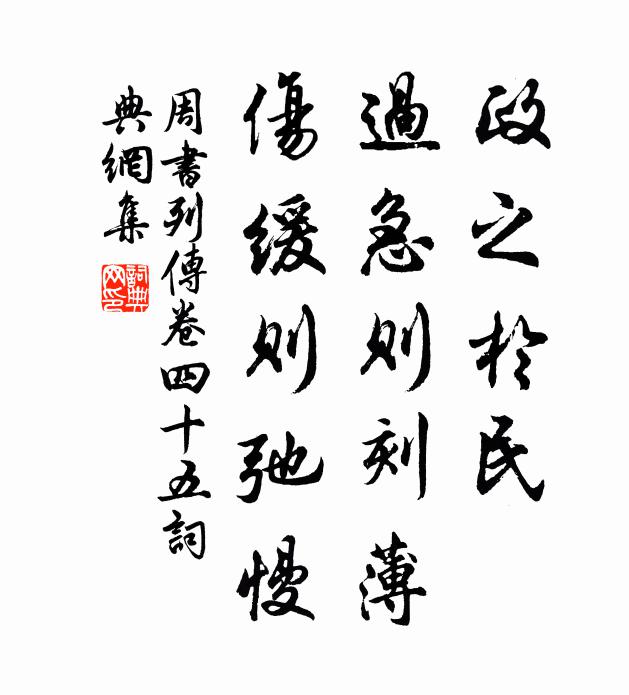 政之於民
過急則刻薄
傷緩則弛慢
周書列傳卷四十五詞
典網集
詞典
网印